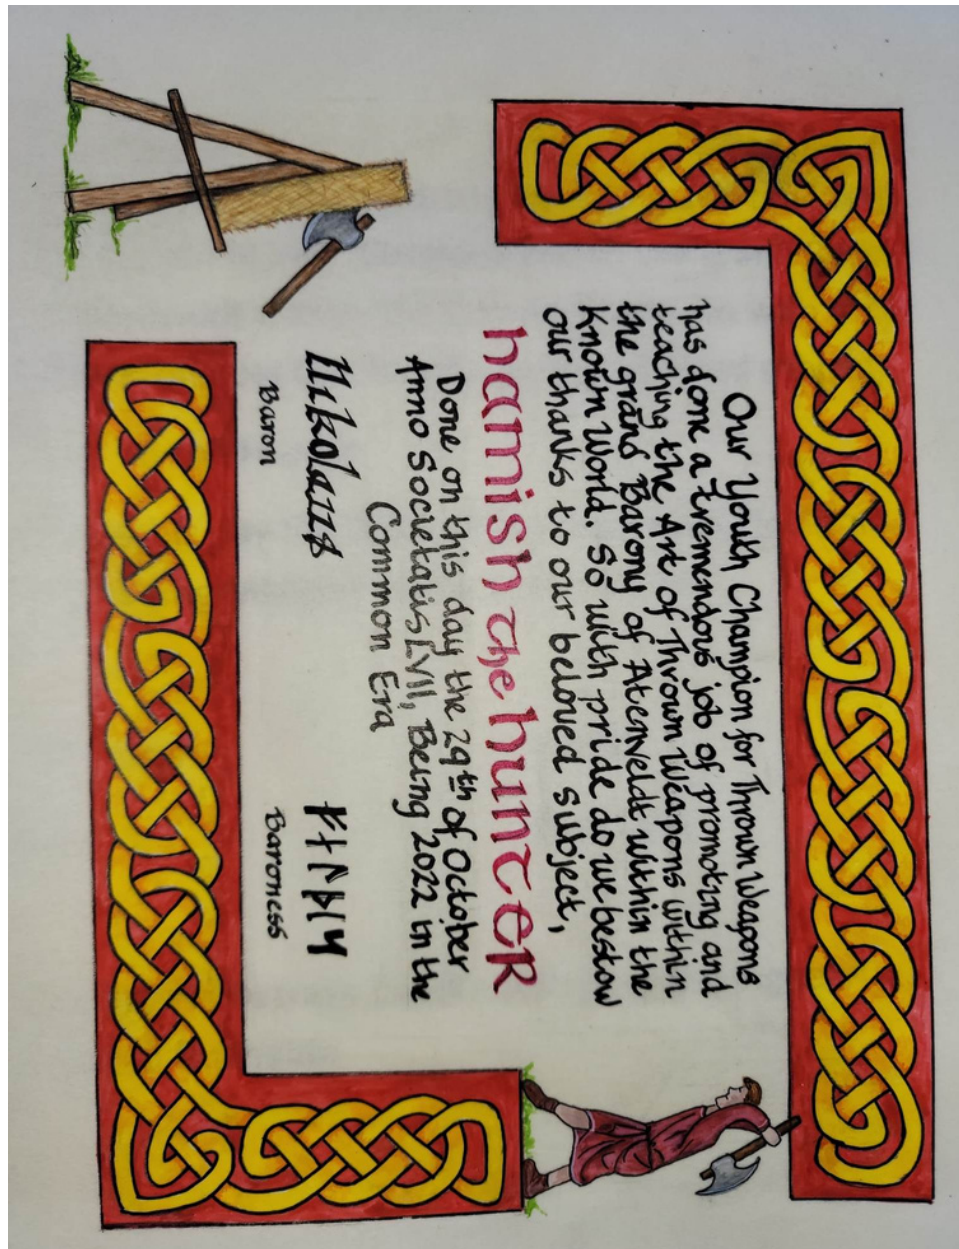 Our Youth Champion for Thrown Weapons
has done a tremendous job of promoting and
teaching the Art of Thrown Weapons within
the grand Barony of Atenveldt within the
Known World. So with pride do we bestow
our thanks to our beloved subject,
hamish the hunter
Done on this day the 29th of October
Anno Societatis LVII, Being 2022 in the
Common Era
Baron
Baroness